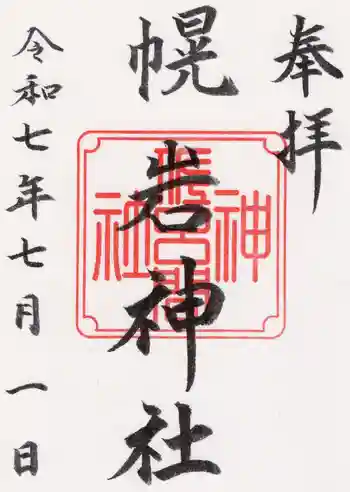 奉拝
幌岩神社
令和七年七月一日
神
社